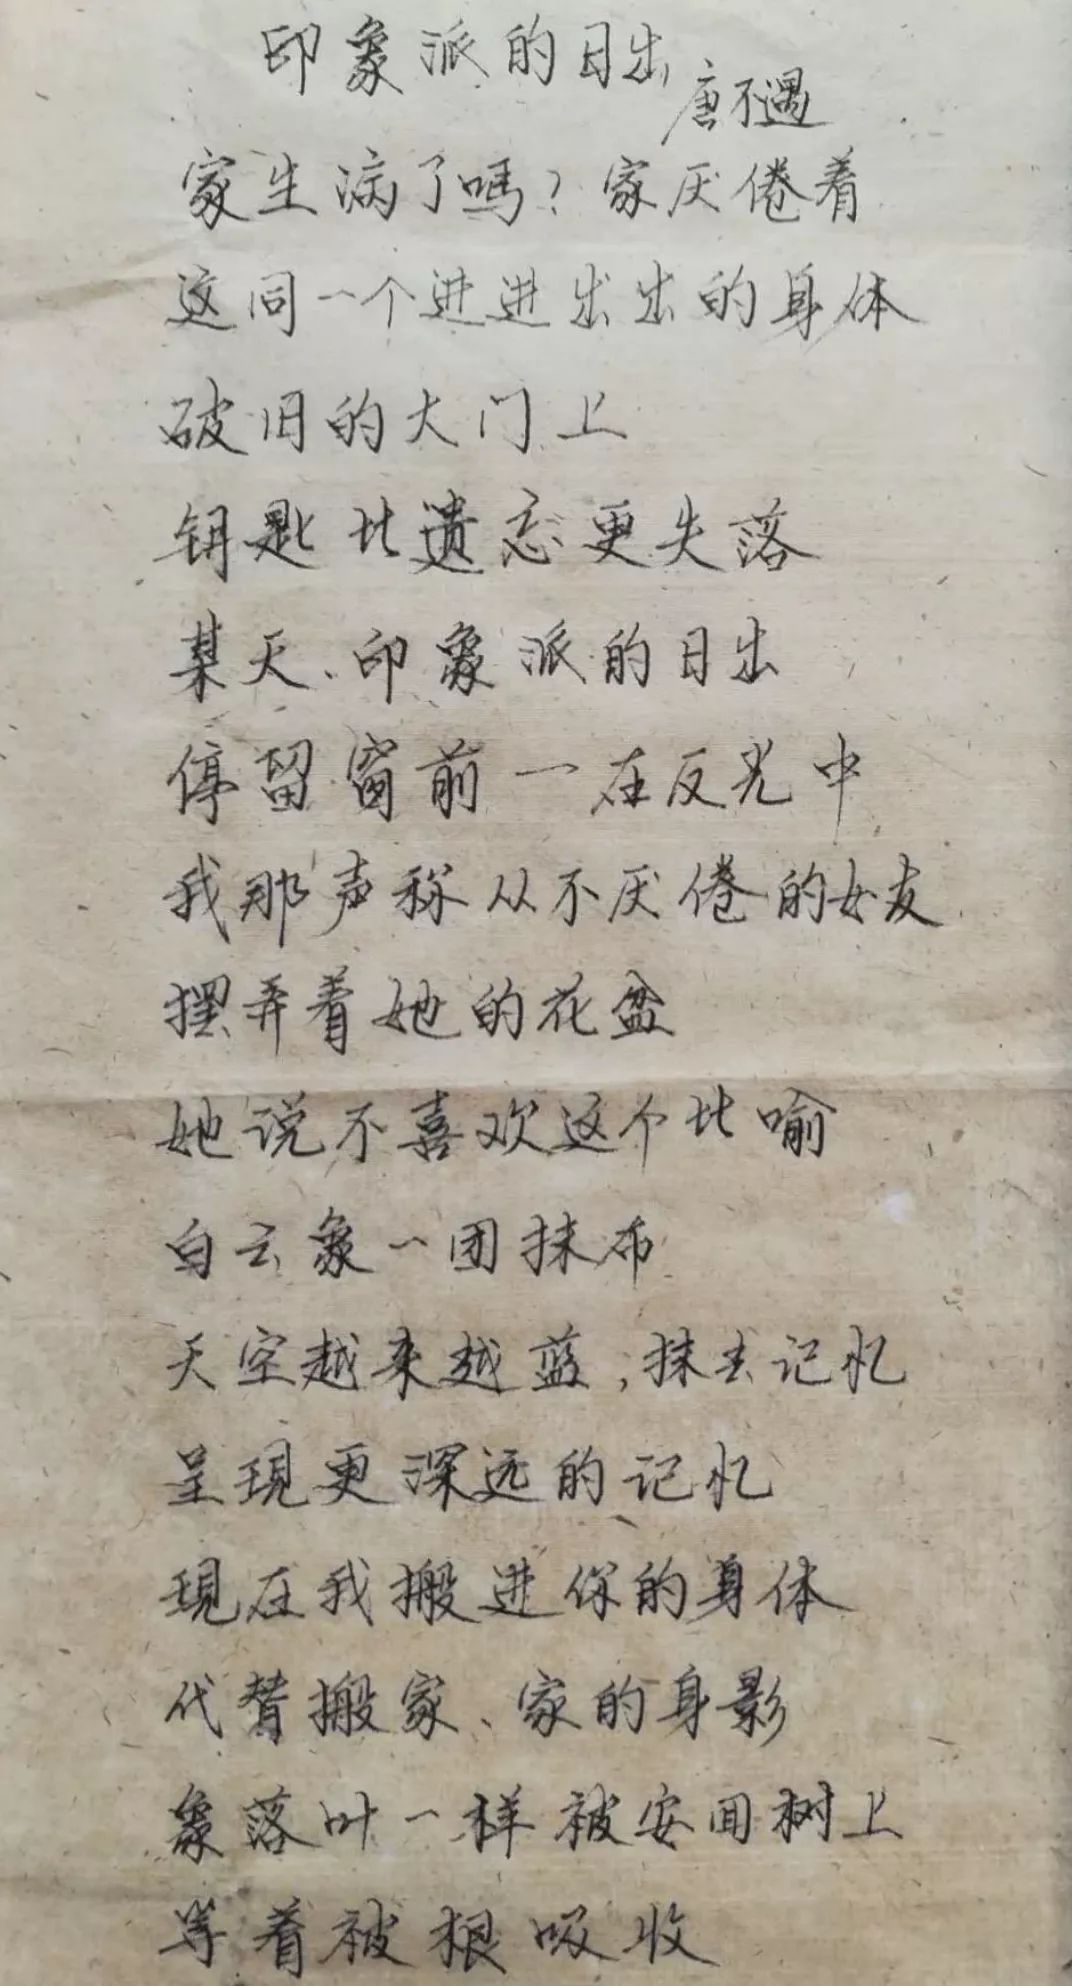 印象派的日出
唐不遇
家生病了嗎？家厌倦着
这同一个进进出出的身体
破旧的大门上
钥匙比遗忘更失落
某天、印象派的日出
停留窗前一在反光中
我那声称从不厌倦的女友
摆弄着她的花盆
她说不喜欢这个比喻
白云象一团抹布
天空越来越蓝，抹去记忆
呈現更深远的记忆
現在我搬进你的身体
代替搬家、家的身影
象落叶一样被安回树上
等着被根吸收